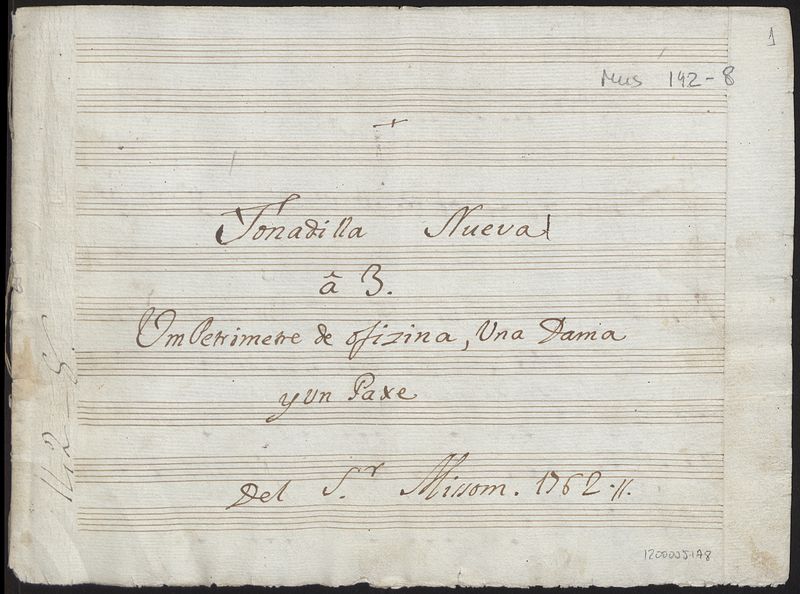 1
Mus 142-8
Tonadilla Nueva
â 3.
Um Petrimetre de ofizina, Una Dama
y un Paxe
Del S.r Missom. 1762.
142-8.
1200005178